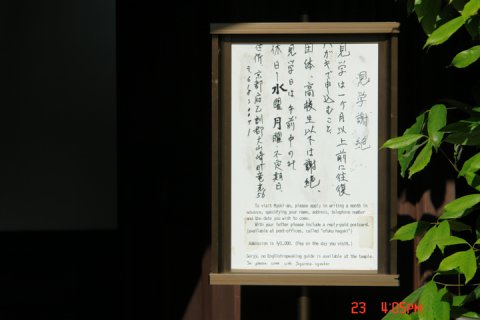 見学謝絶
見学は一ヶ月以上前に往復
ハガキで申込むこと
団体、高校生以下は謝絶。
見学日は午前中のみ
休日 水曜月曜 不定期日
住所 京都府乙訓郡大山崎町竜光56
618-0071
To visit Myoki-an, please apply in writing a month in
advance, specifying your name, address, telephone number
and the date you wish to come.
With your letter please include a reply-paid postcard.
(available at post-offices, called "ofuku hagaki")
Admission is ¥1,000. (Pay on the day you visit.)
Sorry, no English-speaking guide is available at the temple.
So please come with Japanese speaker
23 4:05PM